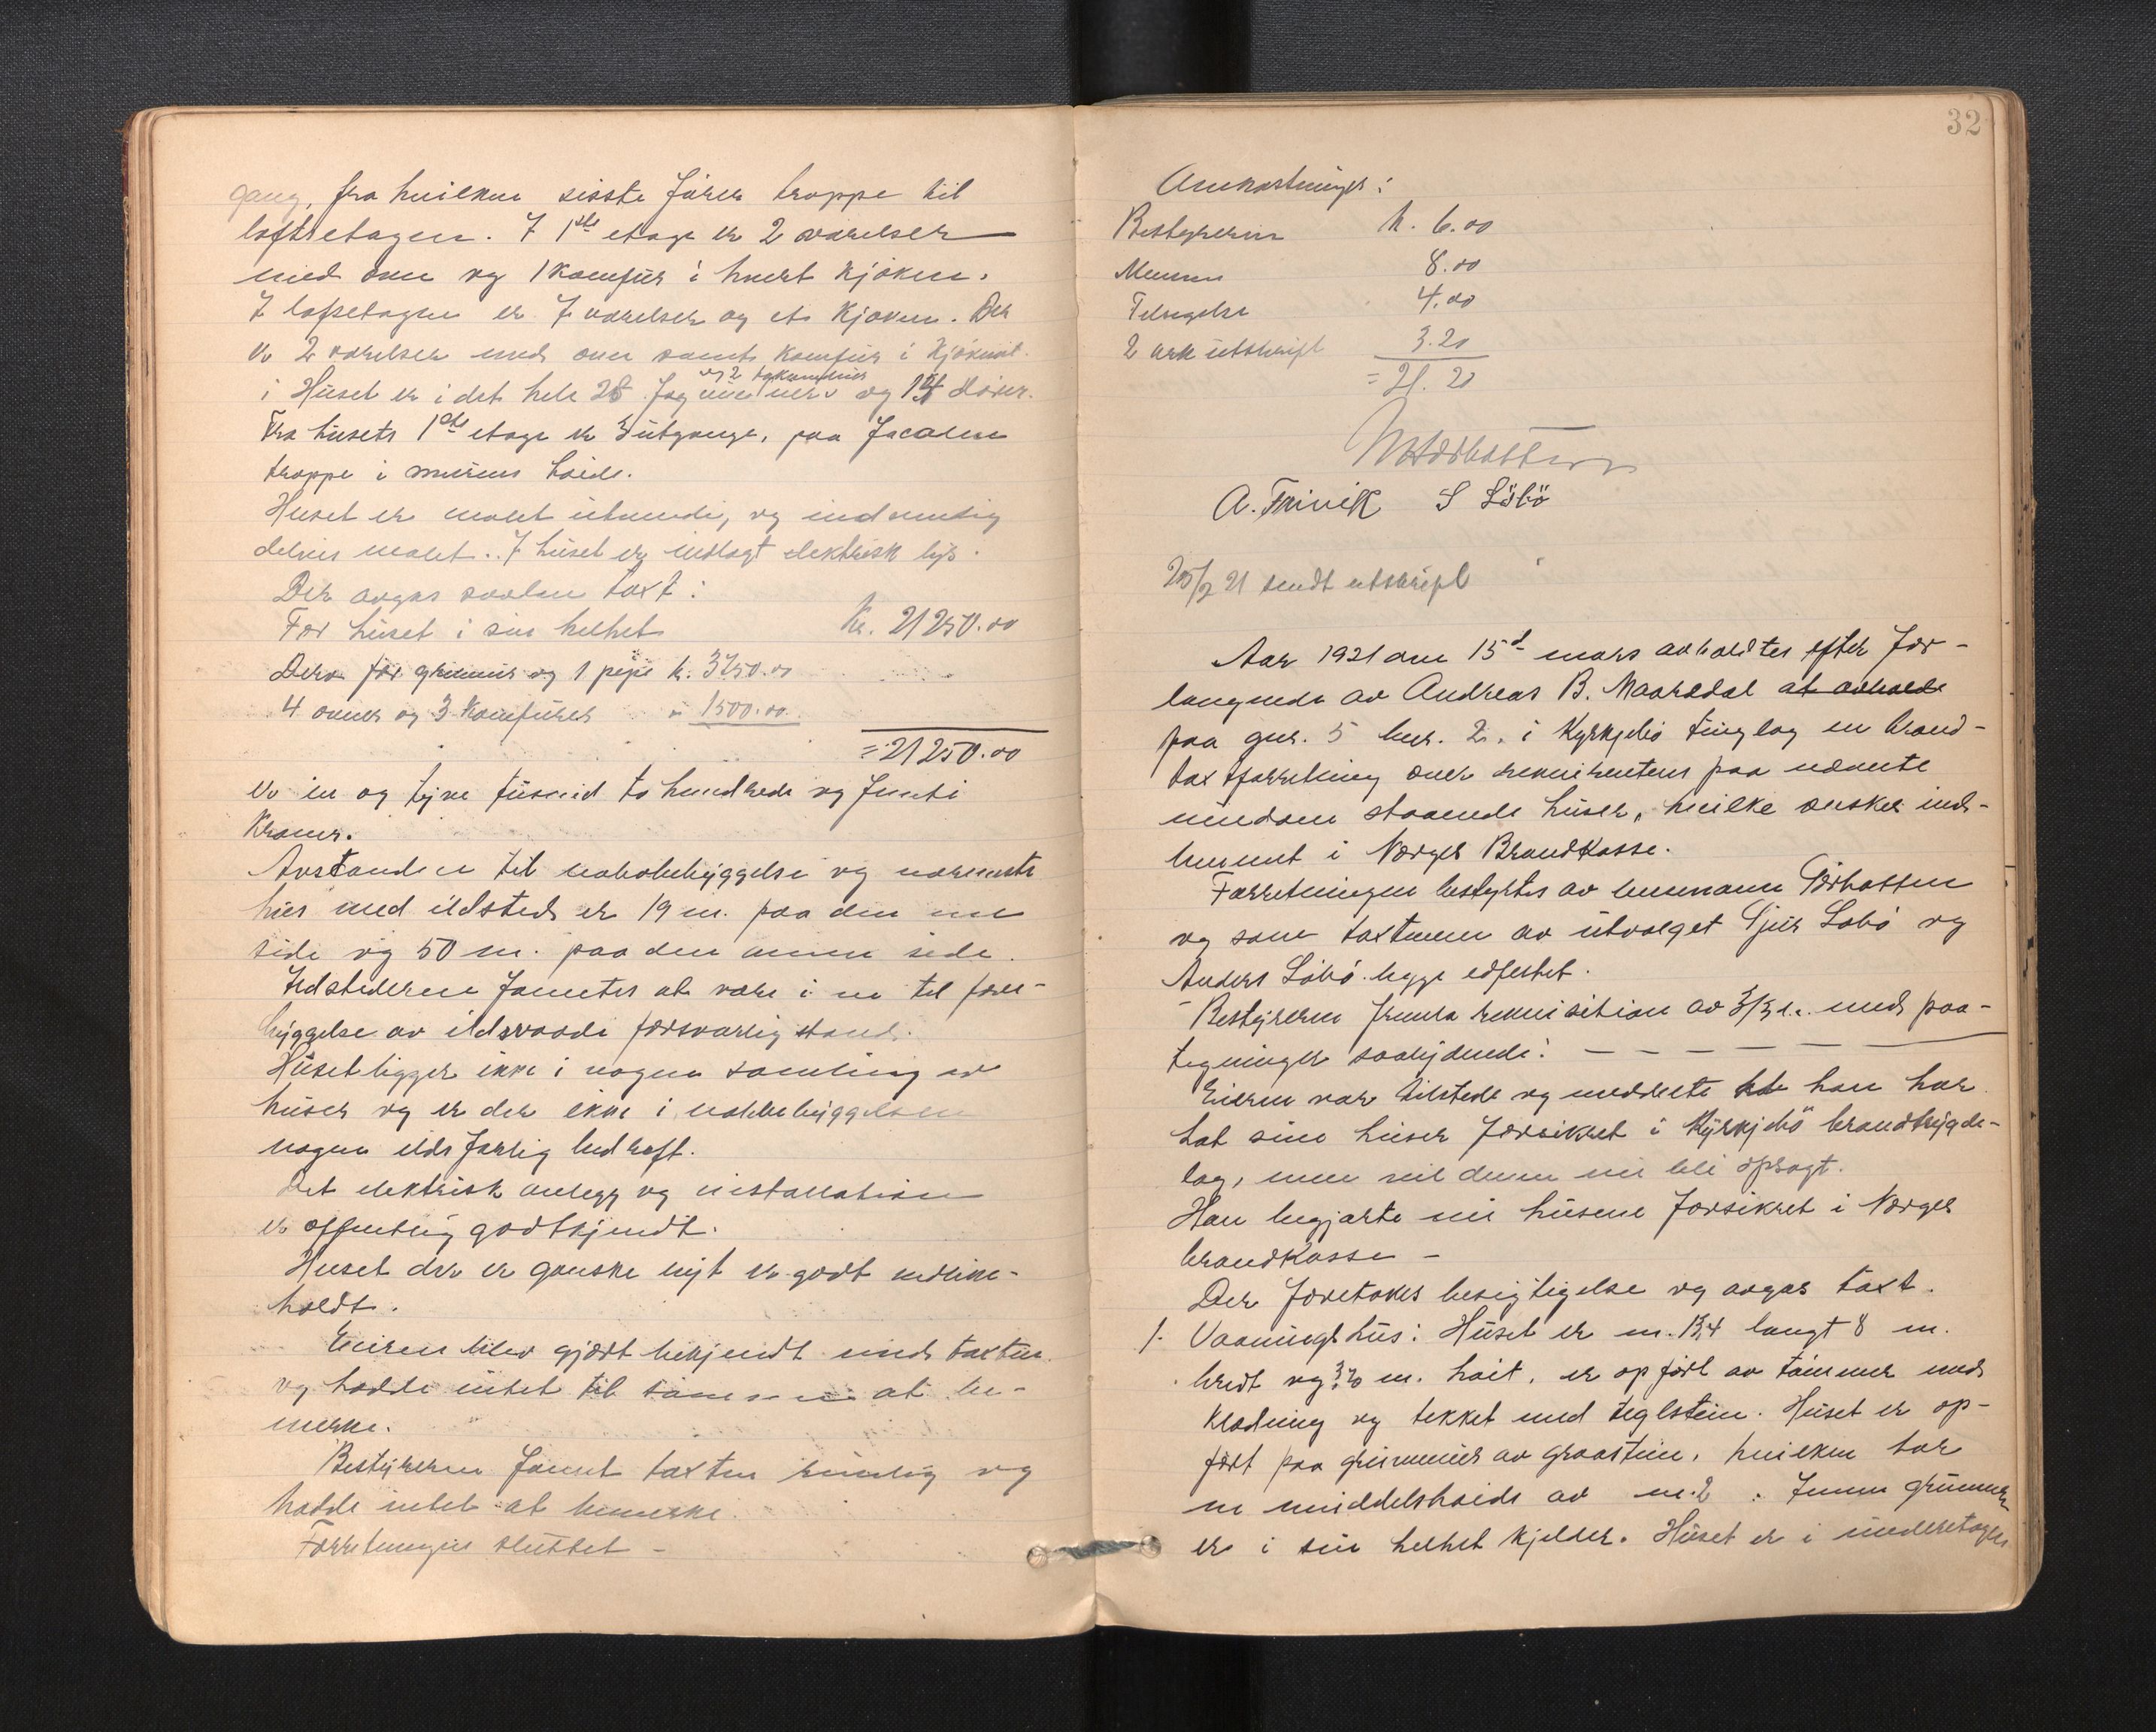 gang, fra hvilken sisste fører trappe til
loftsetagen. I 1ste etage er 2 værelser
med ovn og 1 komfur i hvert kjøken.
I loftsetagen er 7 værelser og et kjøken. Der
er 2 værelser med ovn samt komfur i kjøkenet.
i Huset er i det hele 28 fag og 14 dører.
Fra husets 1ste etage er 3 utgange, paa facaden
trappe i murens høide.
Huset er malt utvendig, og indvendig
delvis malet. I huset er indlagt elektrisk lys.
Der avgas saadan taxt:
For huset i sin helhet Kr. 21250.00
Derav for grunmur og 1 pipe kr. 3750.00
4 ovner og 3 komfurer " 1500.00
= 21250.00
er en og tyve tusend to hundrede og femti
kroner.
Avstanden til nabobebyggelse og nærmeste
hus med ildsted er 19 m. paa den ene
side og 50 m. paa den annen side.
Ildstederne fantes at være i en til fore-
byggelse av ildsvaade forsvarlig stand.
Huset ligger ikke i nogen samling av
huser og er der ikke i nabobebyggelsen
nogen ildsfarlig bedrift.
Det elektrisk anlegg og installation
er offentlig godtkjendt.
Huset der er ganske nyt er godt vedlike-
holdt.
Eieren blev gjort bekjendt med taxten
og hadde intet til samme at be-
merke.
Bestyreren fandt taxten rimelig og
hadde intet at bemerke.
Forretningen sluttet -
32
Omkostninger:
Bestyreren kr. 6.00
Mennene 8.00
Tilsigelse 4.00
2 ark utskrift 3.20
= 21.20
A. Trivik S Löbö
25/3 21 sendt utskrift
Aar 1921 den 15d mars avholdtes efter for-
langende av Andreas B. Maaredal at avholde
paa gnr. 5 bnr. 2. i Kyrkjebø tinglag en brand-
taxtforretning over rekvirentens paa nævnte
eiendom staaende huser, hvilke ønskes ind-
lemmet i Norges Brandkasse.
Forretningen bestyrtes av lensmann
og som taxtmenn av utvalget Gjur Løbø og
Anders Løbø begge edfestet.
- Bestyreren fremla rekvisition av 3/3 d.a. med paa-
tegninger saalydende: - - - - -
Eieren var tilstede og meddelte at han har
hat sine huser forsikret i Kyrkjebø brandtrygde-
lag, men vil denne nu bli opsagt.
Han begjærte nu husene forsikret i Norges
brandkasse -
Der foretokes besigtigelse og avgas taxt.
1. Vaaningshus: Huset er m. 13,4 langt 8 m.
bredt og m. høit, er opført av tømmer med
klædning og tekket med teglstein. Huset er op-
ført paa grunmur av graastein, hvilken har
en middelshøide av m. 2. Innen grunmuren
er i sin helhet kjelder. Huset er i underetagen